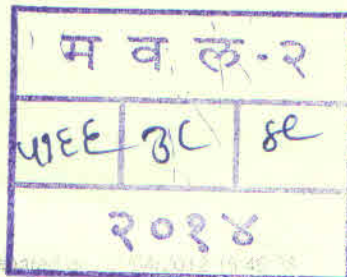 म व ल-२
५१६६ ३८ ४९
२०१४